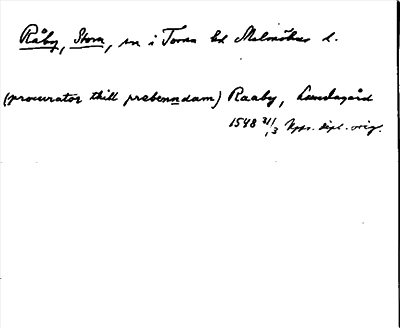 Råby, Stora, sn i Torna hd Malmöhus l.
(procurator thill prebenndam) Raaby, Lundagård
1548 21/3 Upps. dipl. orig.